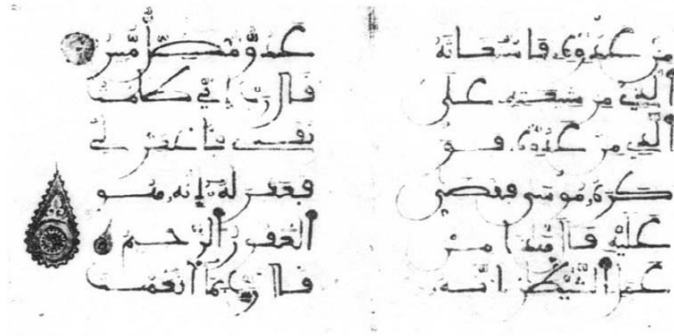 من عدوه فاستغاثه
الذي من شيعته على
الذي من عدوه فو
كزه موسى فقضى
عليه قال هذا من
عمل الشيطن إنه
عدو مضل مبين
قال رب إني ظلمت
نفسي فاغفر لي
فغفر له إنه هو
الغفور الرحيم
قال رب بما أنعمت